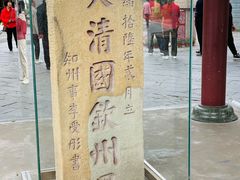 緒拾陸年貳月立
大清國欽州界
知州事李受彤書